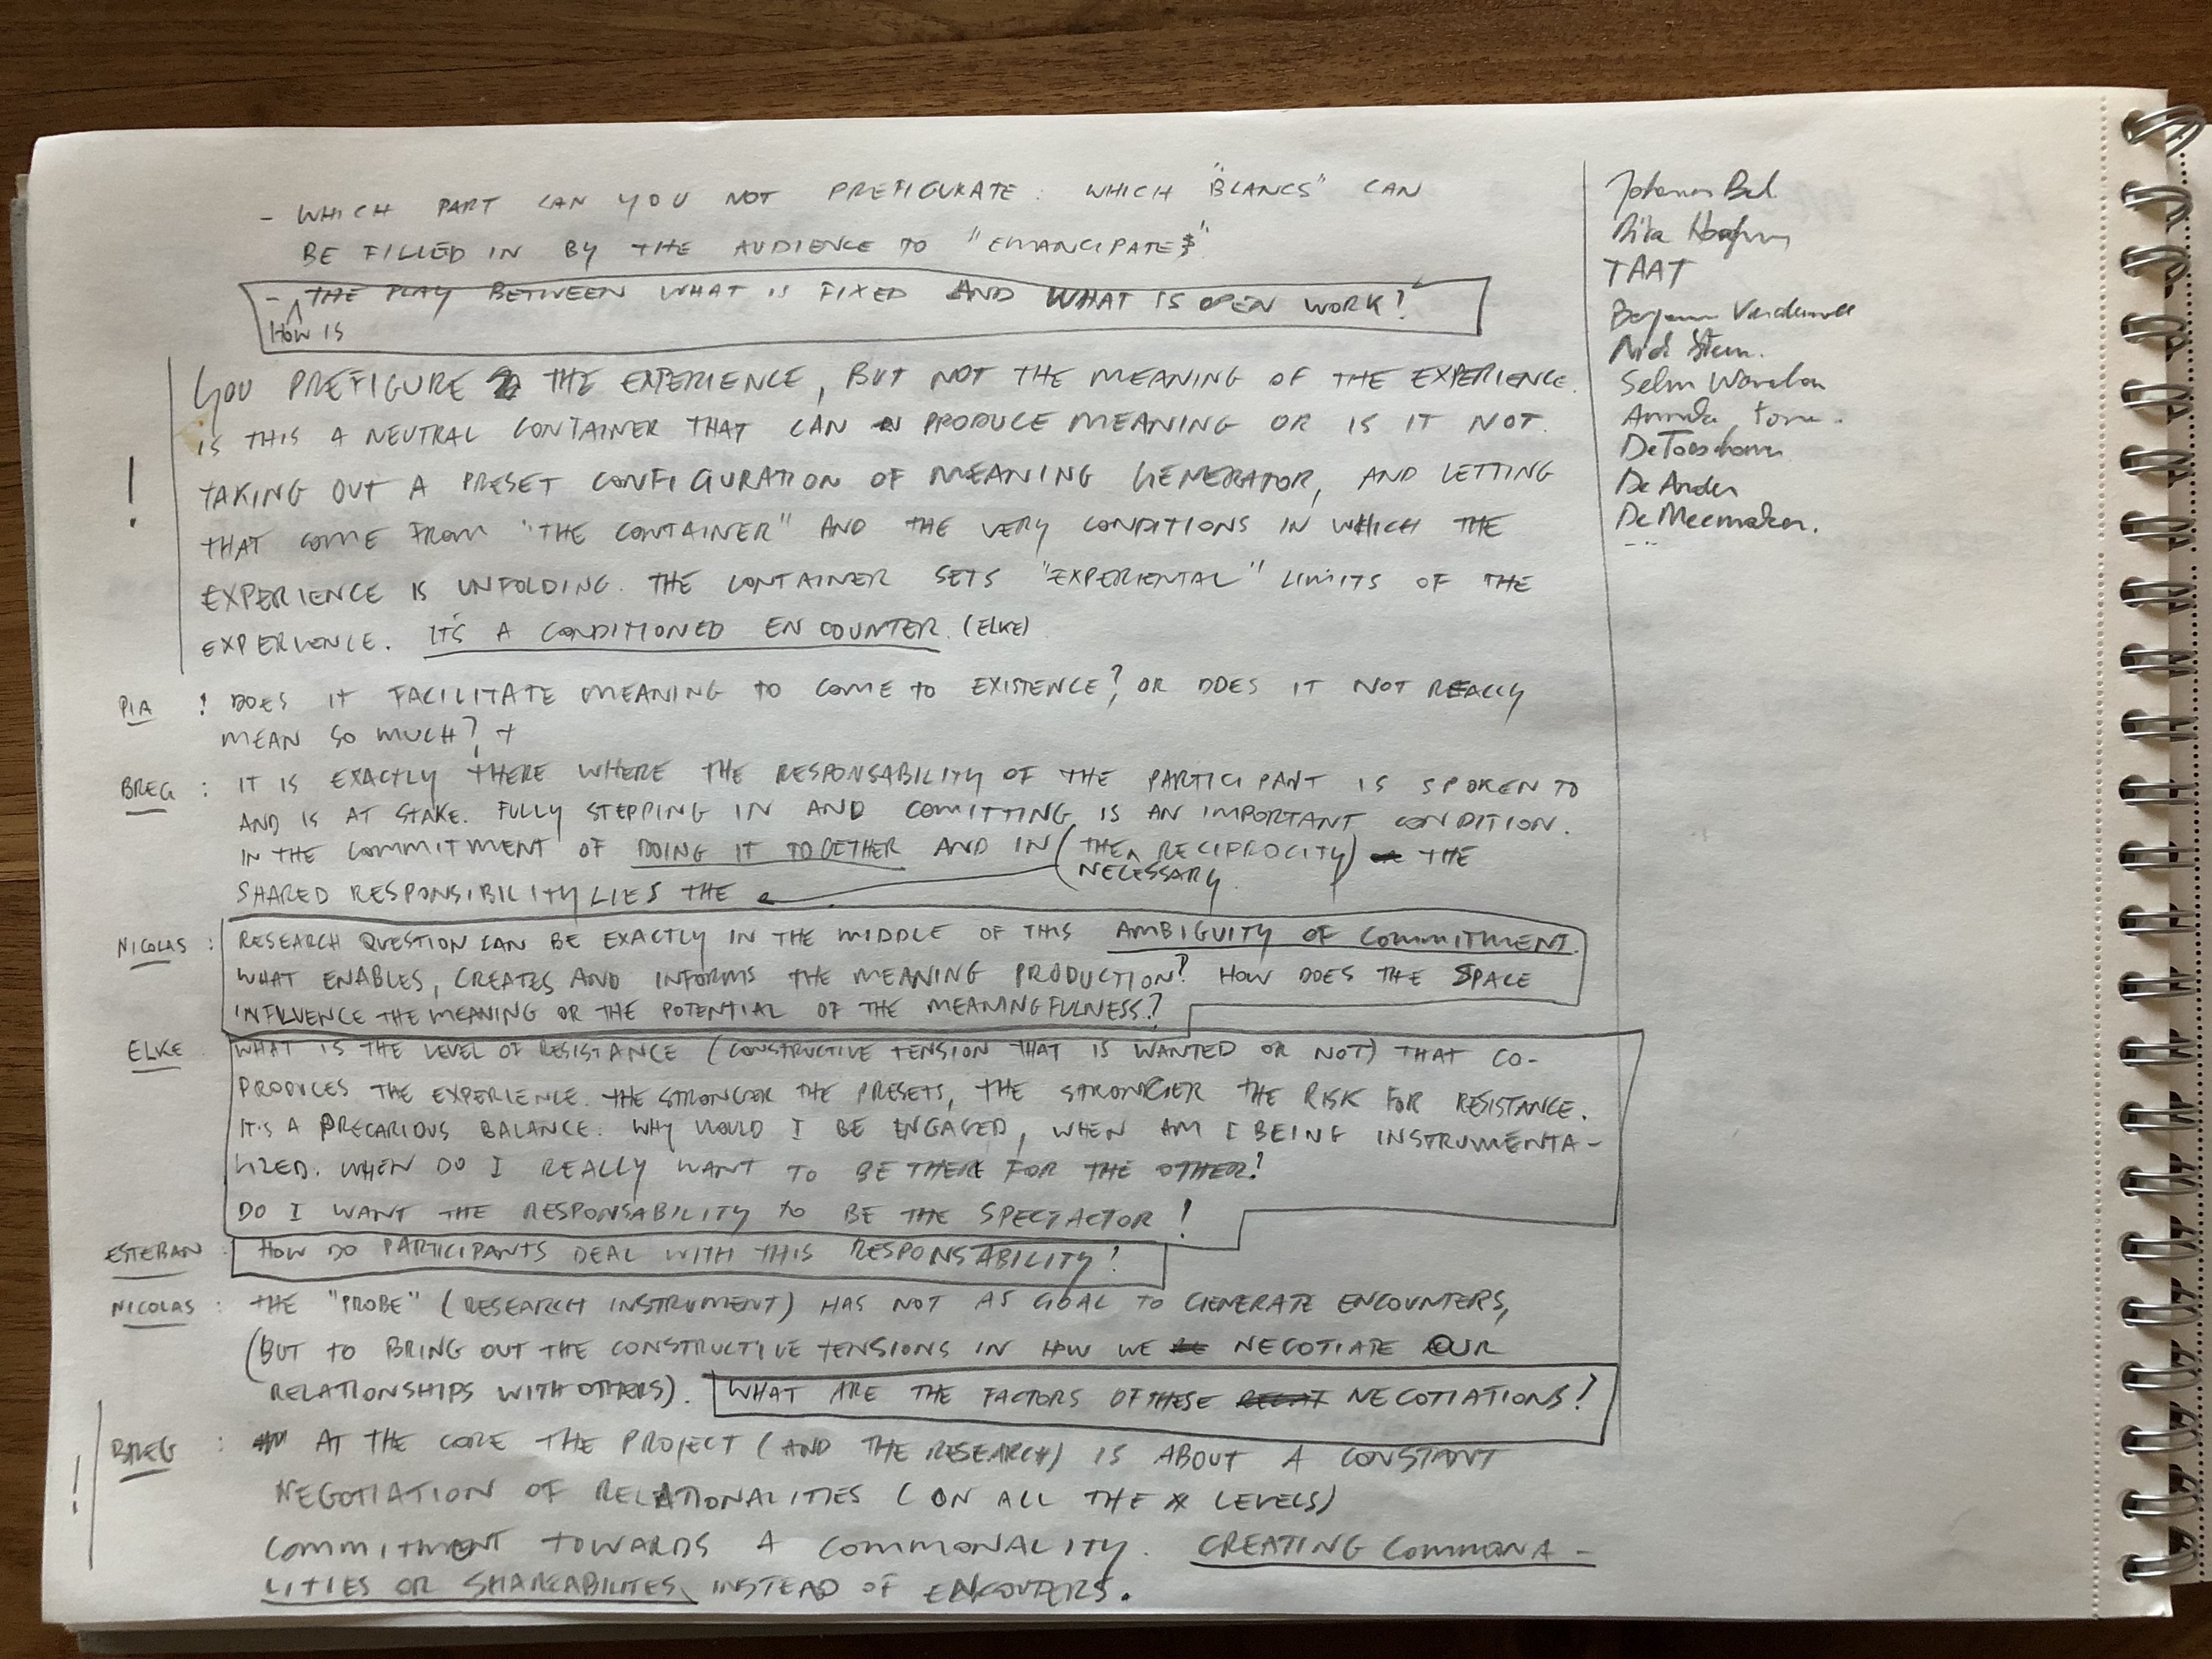 - WHICH PART CAN YOU NOT PREFIGURATE: WHICH "BLANCS" CAN
BE FILLED IN BY THE AUDIENCE TO "EMANCIPATE"
- THE PLAY BETWEEN WHAT IS FIXED AND WHAT IS OPEN WORK?
HOW IS
YOU PREFIGURE THE EXPERIENCE, BUT NOT THE MEANING OF THE EXPERIENCE.
IS THIS A NEUTRAL CONTAINER THAT CAN PRODUCE MEANING OR IS IT NOT.
! TAKING OUT A PRESET CONFIGURATION OF MEANING GENERATOR, AND LETTING
THAT COME FROM "THE CONTAINER" AND THE VERY CONDITIONS IN WHICH THE
EXPERIENCE IS UNFOLDING. THE CONTAINER SETS "EXPERIENTAL" LIMITS OF THE
EXPERIENCE. IT'S A CONDITIONED ENCOUNTER. (ELKE)
PIA : DOES IT FACILITATE MEANING TO COME TO EXISTENCE? OR DOES IT NOT REALLY
MEAN SO MUCH? +
BREG : IT IS EXACTLY THERE WHERE THE RESPONSABILITY OF THE PARTICIPANT IS SPOKEN TO
AND IS AT STAKE. FULLY STEPPING IN AND COMITTING IS AN IMPORTANT CONDITION.
IN THE COMMITMENT OF DOING IT TOGETHER AND IN (THE RECIPROCITY) THE
NECESSARY
SHARED RESPONSIBILITY LIES THE
NICOLAS : RESEARCH QUESTION CAN BE EXACTLY IN THE MIDDLE OF THIS AMBIGUITY OF COMMITMENT.
WHAT ENABLES, CREATES AND INFORMS THE MEANING PRODUCTION? HOW DOES THE SPACE
INFLUENCE THE MEANING OR THE POTENTIAL OF THE MEANINGFULNESS?
ELKE WHAT IS THE LEVEL OF RESISTANCE (CONSTRUCTIVE TENSION THAT IS WANTED OR NOT) THAT CO-
PRODUCES THE EXPERIENCE. THE STRONGER THE PRESETS, THE STRONGER THE RISK FOR RESISTANCE.
IT'S A PRECARIOUS BALANCE. WHY WOULD I BE ENGAGED, WHEN AM I BEING INSTRUMENTA-
LIZED. WHEN DO I REALLY WANT TO BE THERE FOR THE OTHER?
DO I WANT THE RESPONSABILITY TO BE THE SPECTACTOR!
ESTEBAN : HOW DO PARTICIPANTS DEAL WITH THIS RESPONSTABILITY?
NICOLAS : THE "PROBE" (RESEARCH INSTRUMENT) HAS NOT AS GOAL TO GENERATE ENCOUNTERS,
(BUT TO BRING OUT THE CONSTRUCTIVE TENSIONS IN HOW WE NEGOTIATE OUR
RELATIONSHIPS WITH OTHERS). WHAT ARE THE FACTORS OF THESE NEGOTIATIONS?
BREG : AT THE CORE THE PROJECT (AND THE RESEARCH) IS ABOUT A CONSTANT
! NEGOTIATION OF RELATIONALITIES (ON ALL THE LEVELS)
COMMITMENT TOWARDS A COMMONALITY. CREATING COMMONA-
LITIES OR SHAREABILITES INSTEAD OF ENCOUTERS.
TAAT
De Ander
De Meemaker.
...